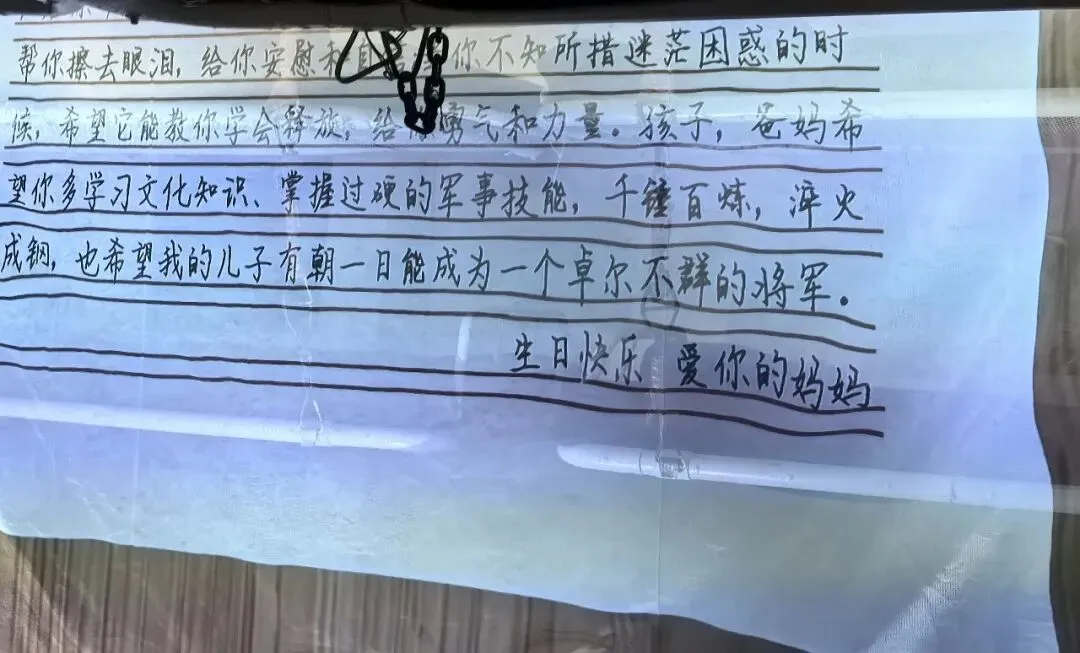 帮你擦去眼泪，给你安慰和自 你不知所措迷茫困惑的时
候，希望它能教你学会释放，给 勇气和力量。孩子，爸妈希
望你多学习文化知识、掌握过硬的军事技能，千锤百炼，淬火
成钢，也希望我的儿子有朝一日能成为一个卓尔不群的将军。
生日快乐 爱你的妈妈